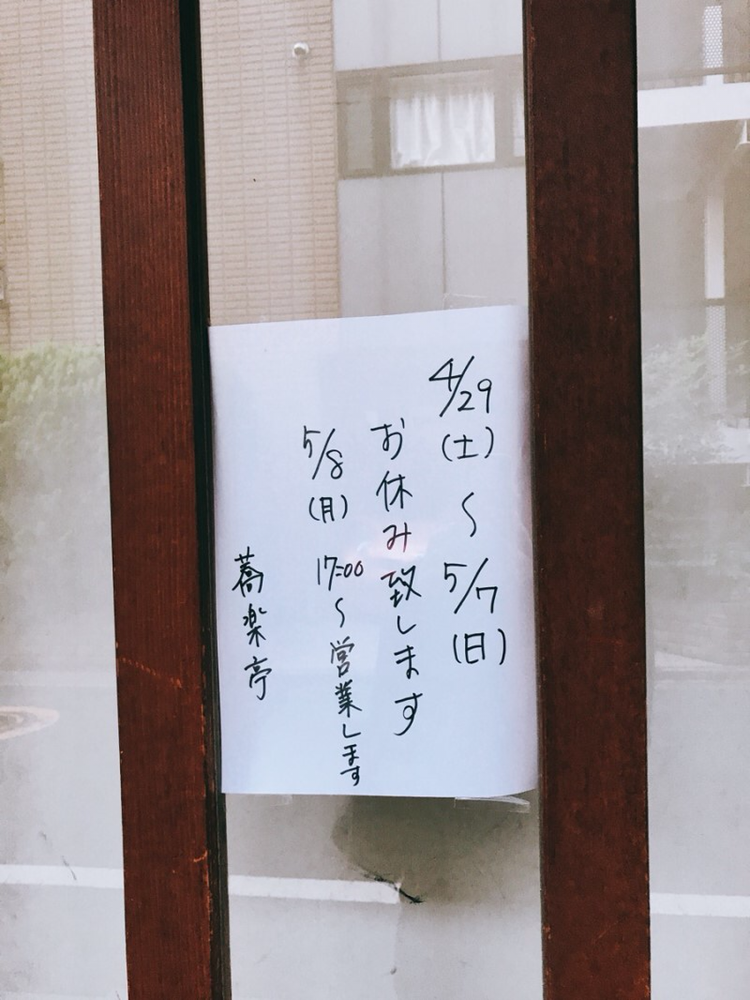 4/29(土)~5/7(日)
お休み致します
5/8(月) 17:00~営業します
蕎楽亭